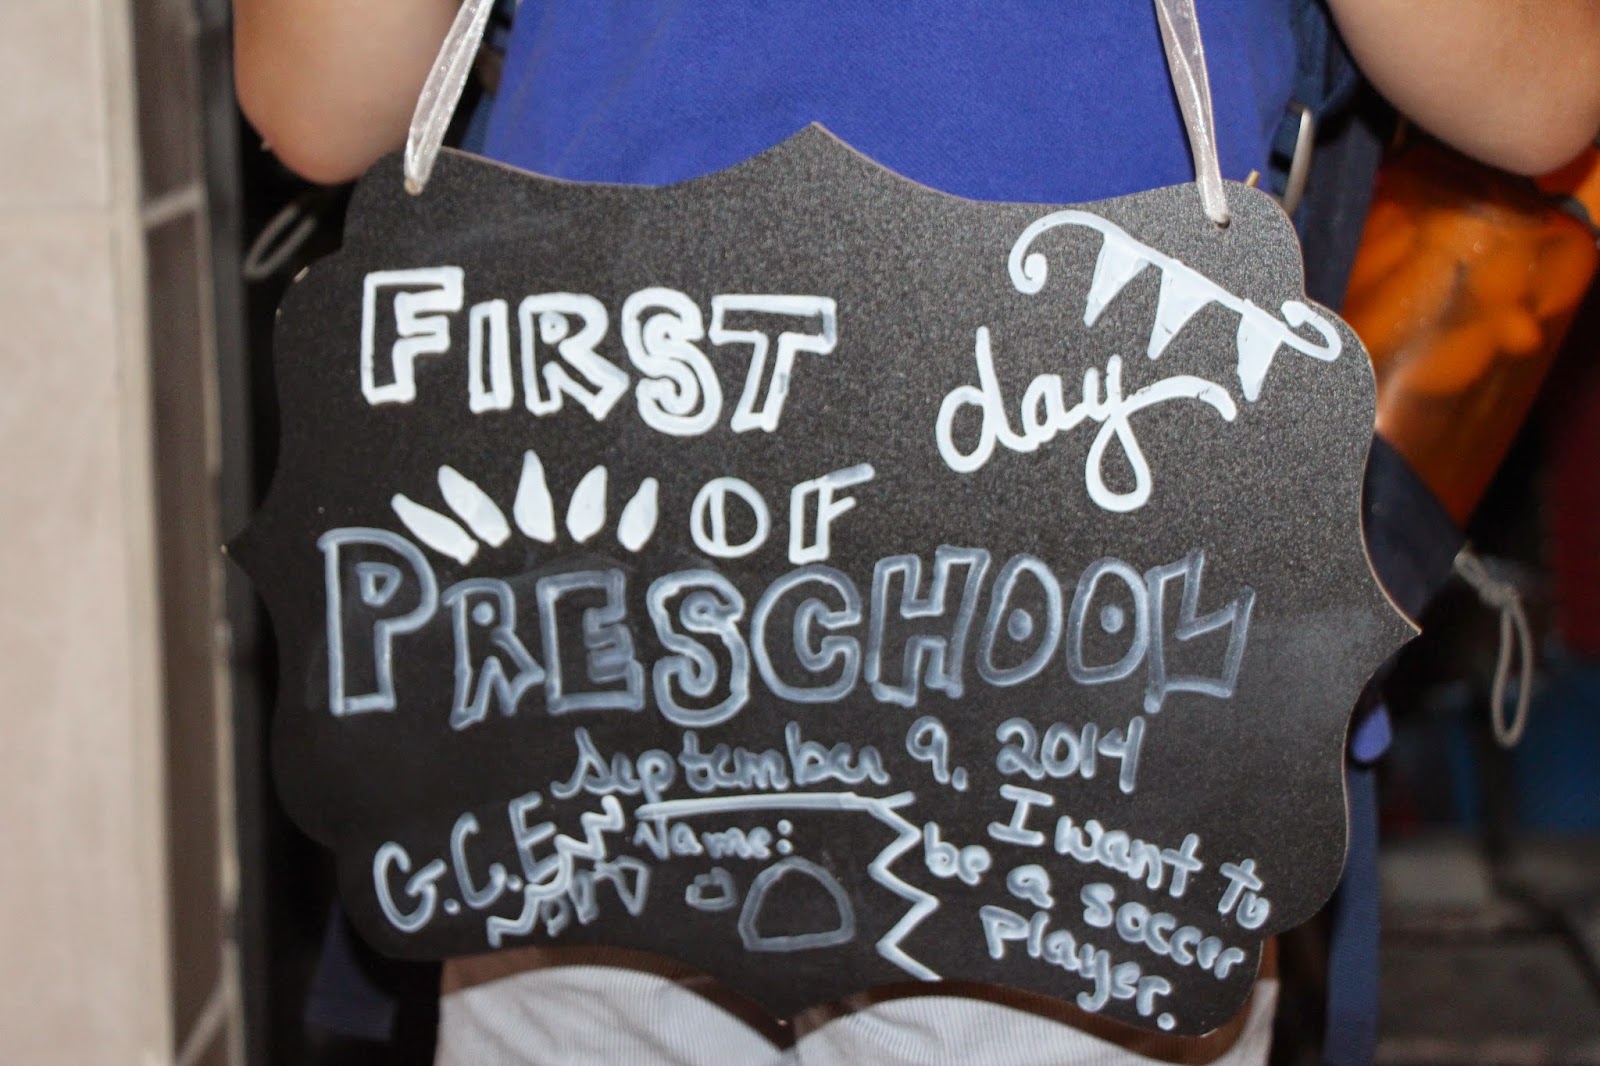 FIRST day
OF
PRESCHOOL
September 9, 2014
G.C.E.
Name:
I want to
be a soccer
player.